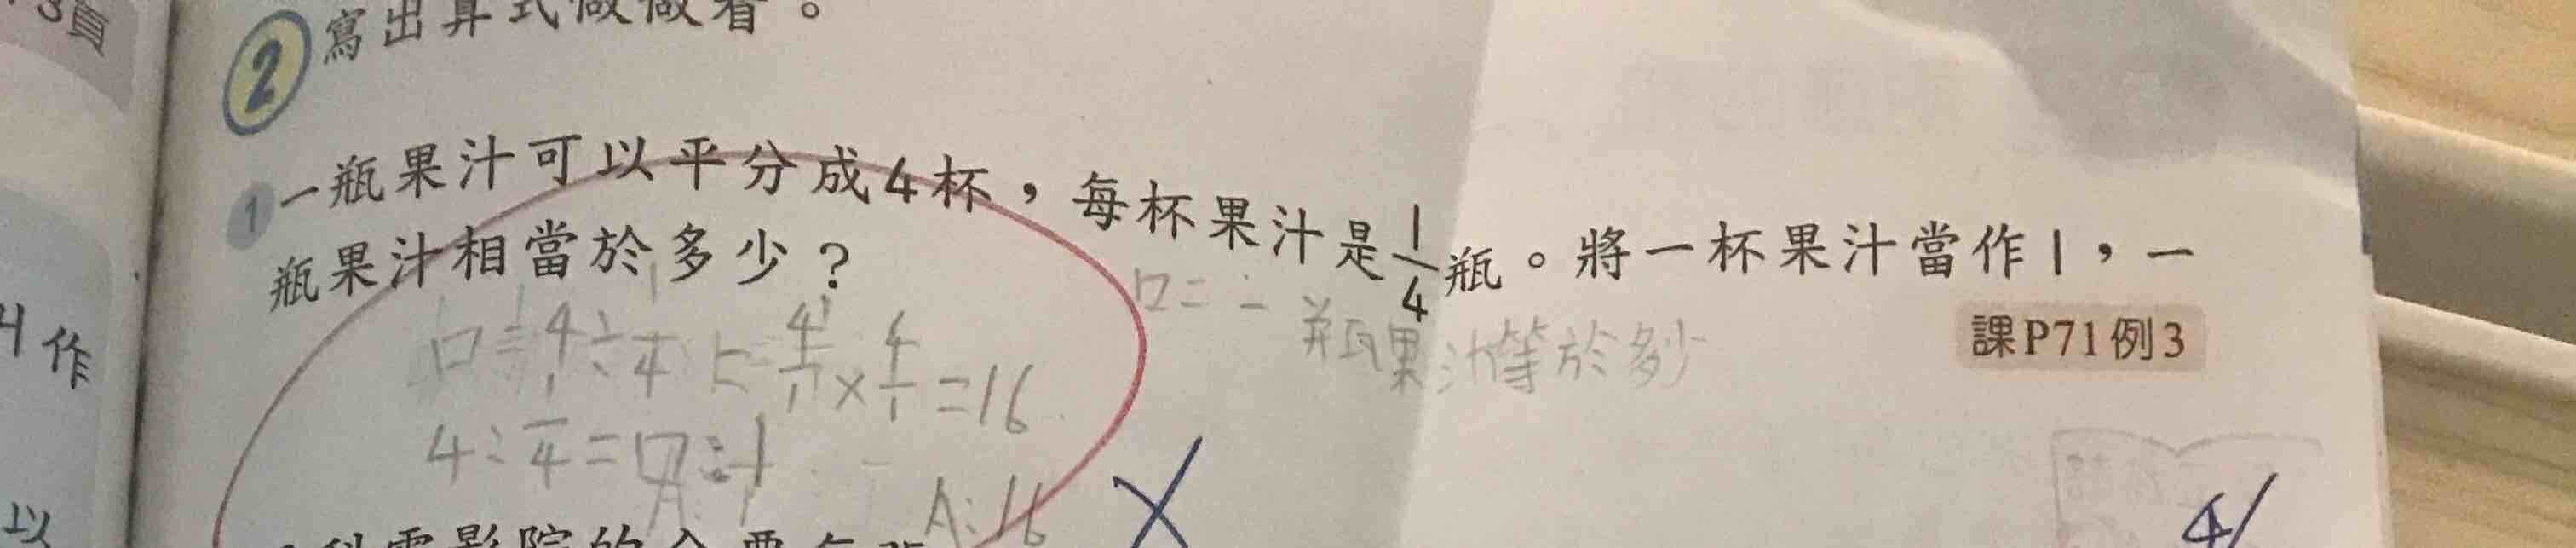 3頁
2 寫出算式做做看。
1 一瓶果汁可以平分成4杯，每杯果汁是1/4瓶。將一杯果汁當作1，一
瓶果汁相當於多少？
課P71例3
口=
瓶果汁等於多少
口=4/1÷1/4=4/1×4/1=16
4÷1/4=口÷1
A:16
作
以
4